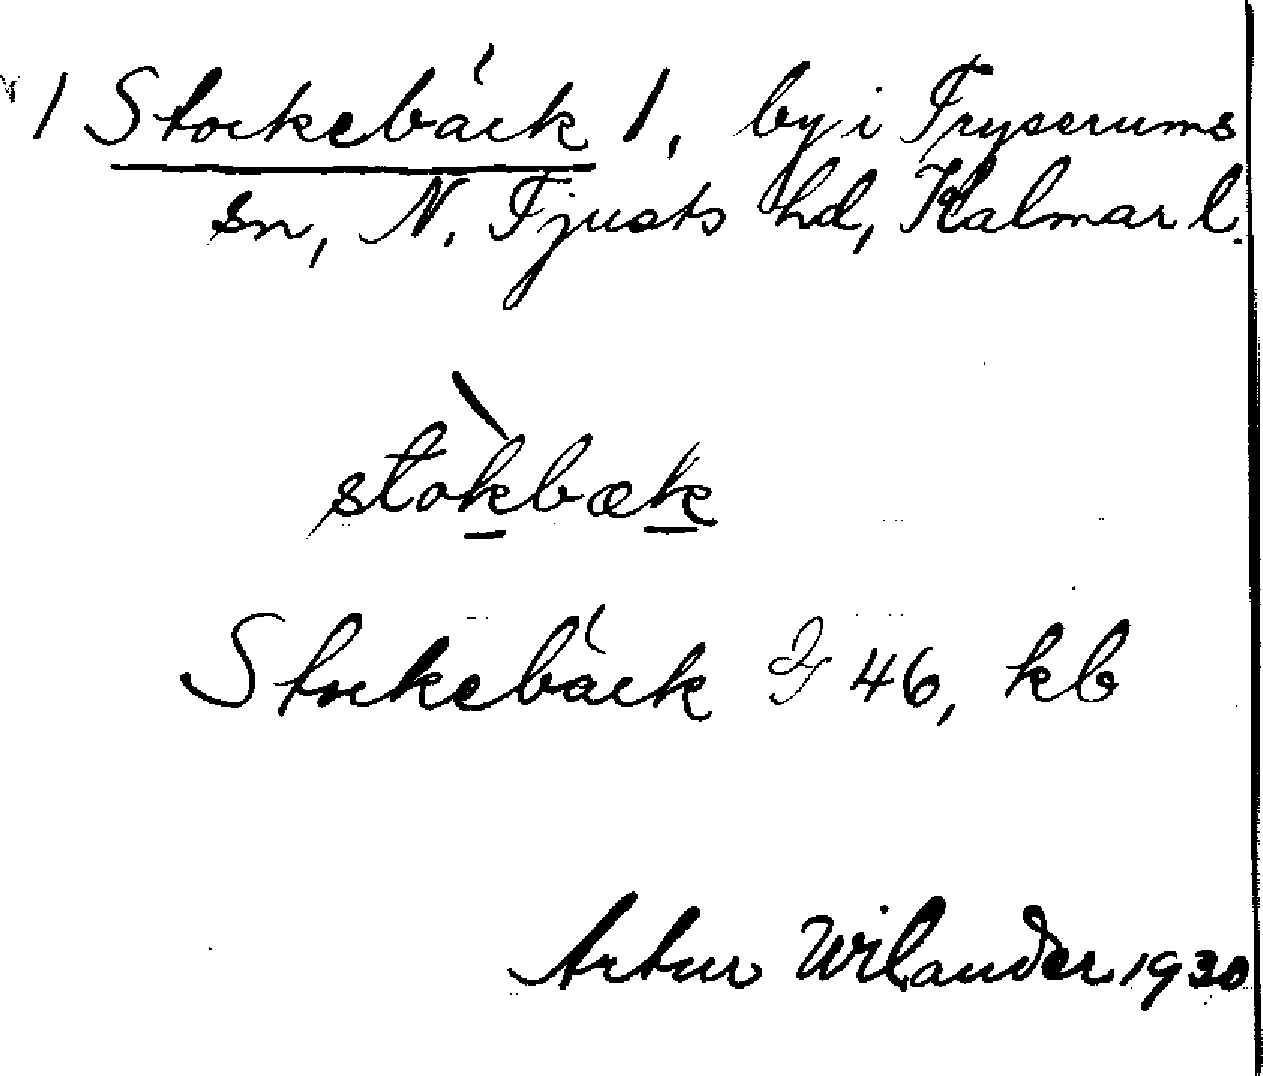 1 Stockebäck 1, by i Tryserums
sn, N. Tjusts hd, Kalmar l.
stòkbæk
Stockebäck 46, kb
Artur Wilander 1930